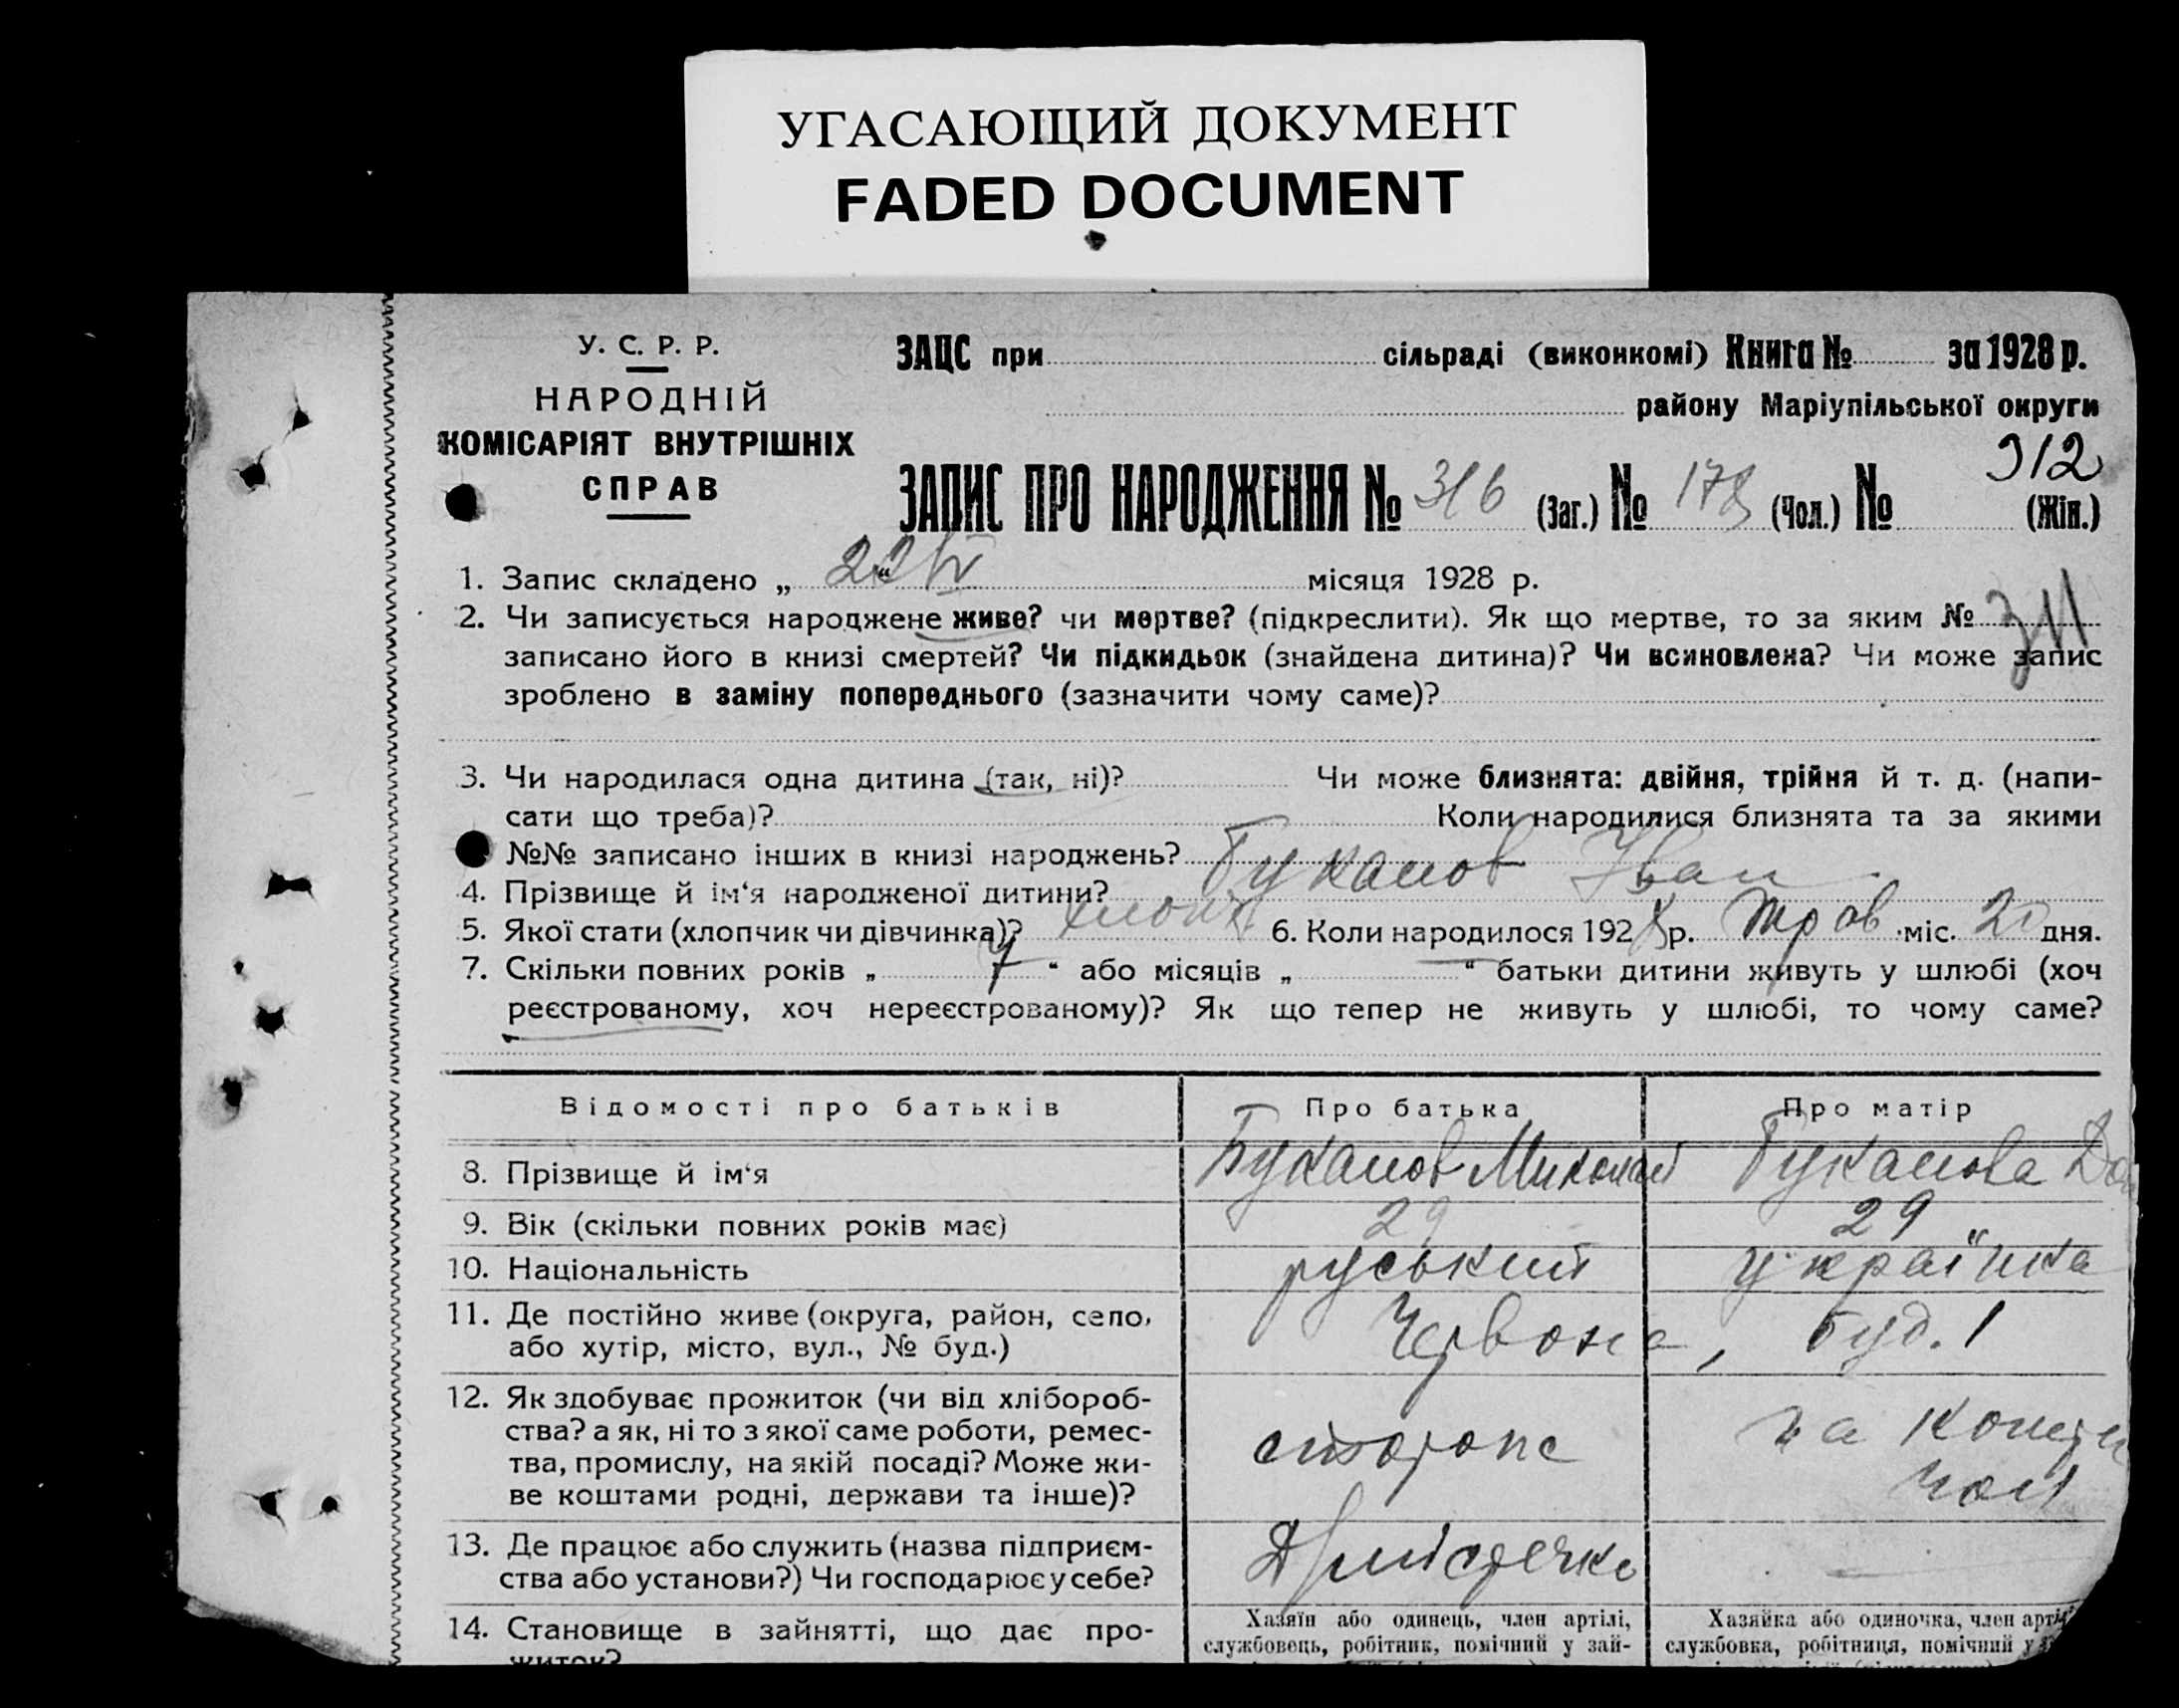 УГАСАЮЩИЙ ДОКУМЕНТ
FADED DOCUMENT
У. С. Р. Р.
НАРОДНІЙ
КОМІСАРІЯТ ВНУТРІШНІХ
СПРАВ
ЗАЦС при сільраді (виконкомі) Книга № за 1928 р.
району Маріупільської округи
312
ЗАПИС ПРО НАРОДЖЕННЯ № 316 (Заг.) № 178 (Чол.) № (Жін.)
1. Запис складено „ 22 “ місяця 1928 р.
2. Чи записується народжене живе? чи мертве? (підкреслити). Як що мертве, то за яким № 311
записано його в книзі смертей? Чи підкидьок (знайдена дитина)? Чи всиновлена? Чи може запис
зроблено в заміну попереднього (зазначити чому саме)?
3. Чи народилася одна дитина (так, ні)? Чи може близнята: двійня, трійня й т. д. (напи-
сати що треба)? Коли народилися близнята та за якими
№№ записано інших в книзі народжень?
4. Прізвище й ім‘я народженої дитини? Буканов Іван
5. Якої стати (хлопчик чи дівчинка)? хлопч 6. Коли народилося 1928 р. Трав міс. 20 дня.
7. Скільки повних років „ 7 “ або місяців „ “ батьки дитини живуть у шлюбі (хоч
реєстрованому, хоч нереєстрованому)? Як що тепер не живуть у шлюбі, то чому саме?
Відомості про батьків Про батька Про матір
8. Прізвище й ім‘я Буканов Миколай Буканова
9. Вік (скільки повних років має) 29 29
10. Національність руський українка
11. Де постійно живе (округа, район, село,
або хутір, місто, вул., № буд.) Червона, буд. 1
12. Як здобуває прожиток (чи від хлібороб-
ства? а як, ні то з якої саме роботи, ремес-
тва, промислу, на якій посаді? Може жи-
ве коштами родні, держави та інше)? за
13. Де працює або служить (назва підприєм-
ства або установи?) Чи господарює у себе?
14. Становище в зайнятті, що дає про-
житок?
Хазяїн або одинець, член артілі,
службовець, робітник, помічний у зай-
Хазяйка або одиночка, член арті
службовка, робітниця, помічний у